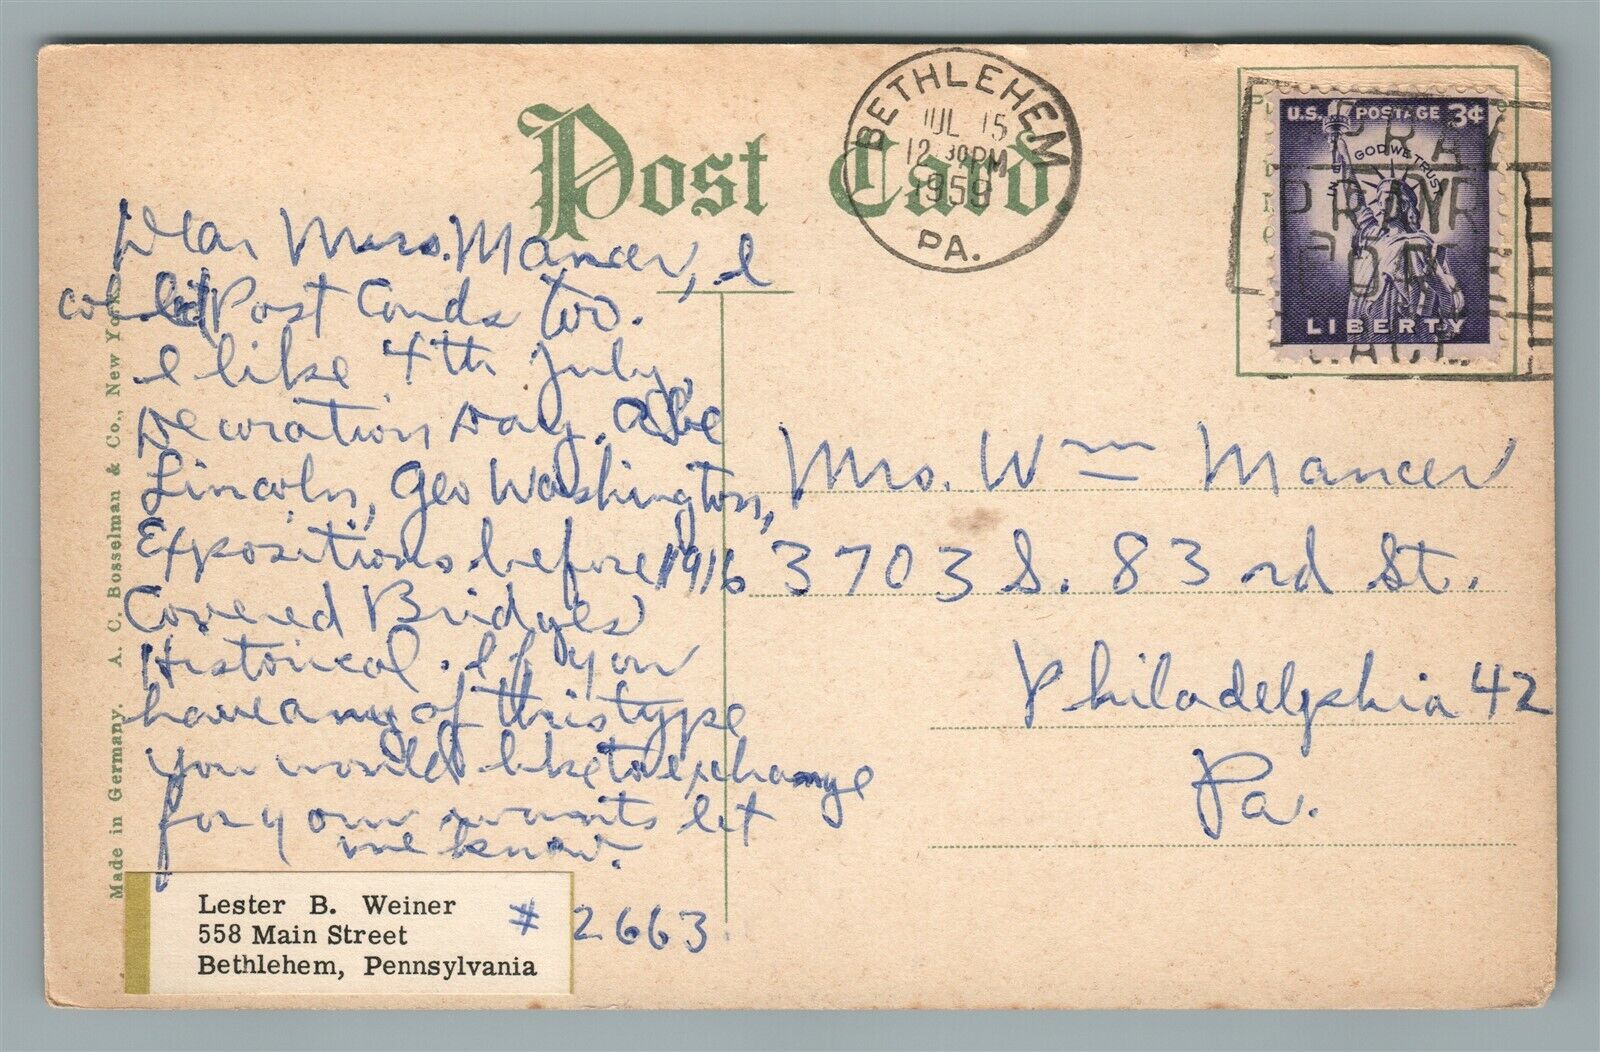 Post Card.
BETHLEHEM
JUL 15
12 30 PM
1959
PA.
U.S. POSTAGE 3¢
IN GOD WE TRUST
LIBERTY
PRAY
FOR
Dear Mrs. Mancer, I
collect Post Cards too.
I like 4th July,
Decoration Day. Abe
Lincoln, Geo Washington,
Expositions before 1916
Covered Bridges
Historical. If you
have any of this type
you would like to exchange
for your wants let
me know.
Mrs. Wm Mancer
3703 S. 83rd St.
Philadelphia 42
Pa.
Made in Germany. A. C. Bosselman & Co., New York
Lester B. Weiner
558 Main Street
Bethlehem, Pennsylvania
# 2663